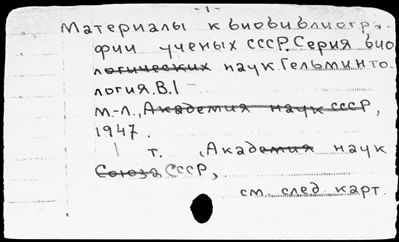 -1-
Материалы к биобиблиогра-
фии ученых СССР. Серия био
логических наук. Гельминто
логия. В.1 -
м.-л., Академия наук СССР,
1947.
1 т. , Академия наук
Союза СССР,
см. след. карт.